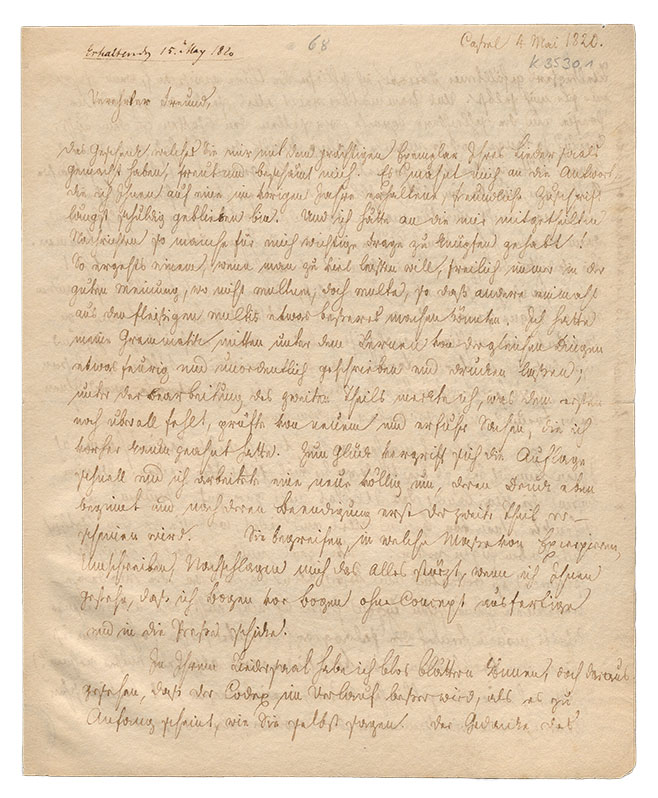 Erhalten den 15. May 1820
68
Cassel 4 Mai 1820.
K 3530,1
Verehrter Freund,
das Geschenk welches Sie mir mit dem prächtigen Exemplar Ihres Liedersaals
gemacht haben, freut und beschämt mich. Es mahnt mich an die Antwort
die ich Ihnen auf eine im vorigen Jahre erhaltene, freundliche Zuschrift
längst schuldig geblieben bin. Und ich hätte an die mir mitgetheilten
Nachrichten so manche für mich wichtige Frage zu knüpfen gehabt!
So ergehts einem, wenn man zu viel leisten will, freilich immer in der
guten Meinung, wo nicht multum, doch multa, so daß andere einmahl
aus den fleißigen multis etwas besseres machen könnten. Ich hatte
meine Grammatik mitten unter dem Lernen von dergleichen Dingen
etwas feurig und unordentlich geschrieben und drucken laßen;
unter der Bearbeitung des zweiten Theils merkte ich, was dem ersten
noch überall fehlt, prüfte von neuem und erfuhr Sachen, die ich
vorher kaum geahnt hatte. Zum Glück vergriff sich die Auflage
schnell und ich arbeitete eine neue völlig um, deren Druck eben
beginnt und nach deren Beendigung erst der zweite Theil er-
scheinen wird. Sie begreifen, in welche Masse von Excerpiren,
Umschreiben, Nachschlagen mich das alles stürzt, wenn ich Ihnen
gestehe, daß ich Bogen vor Bogen ohne Concept ausfertige
und in die Presse schicke.
In Ihrem Liedersaal habe ich blos blättern können, doch daraus
gesehen, daß der Codex im Verlauf besser wird, als es zu
Anfang scheint, wie Sie selbst sagen. Der Gedanke des